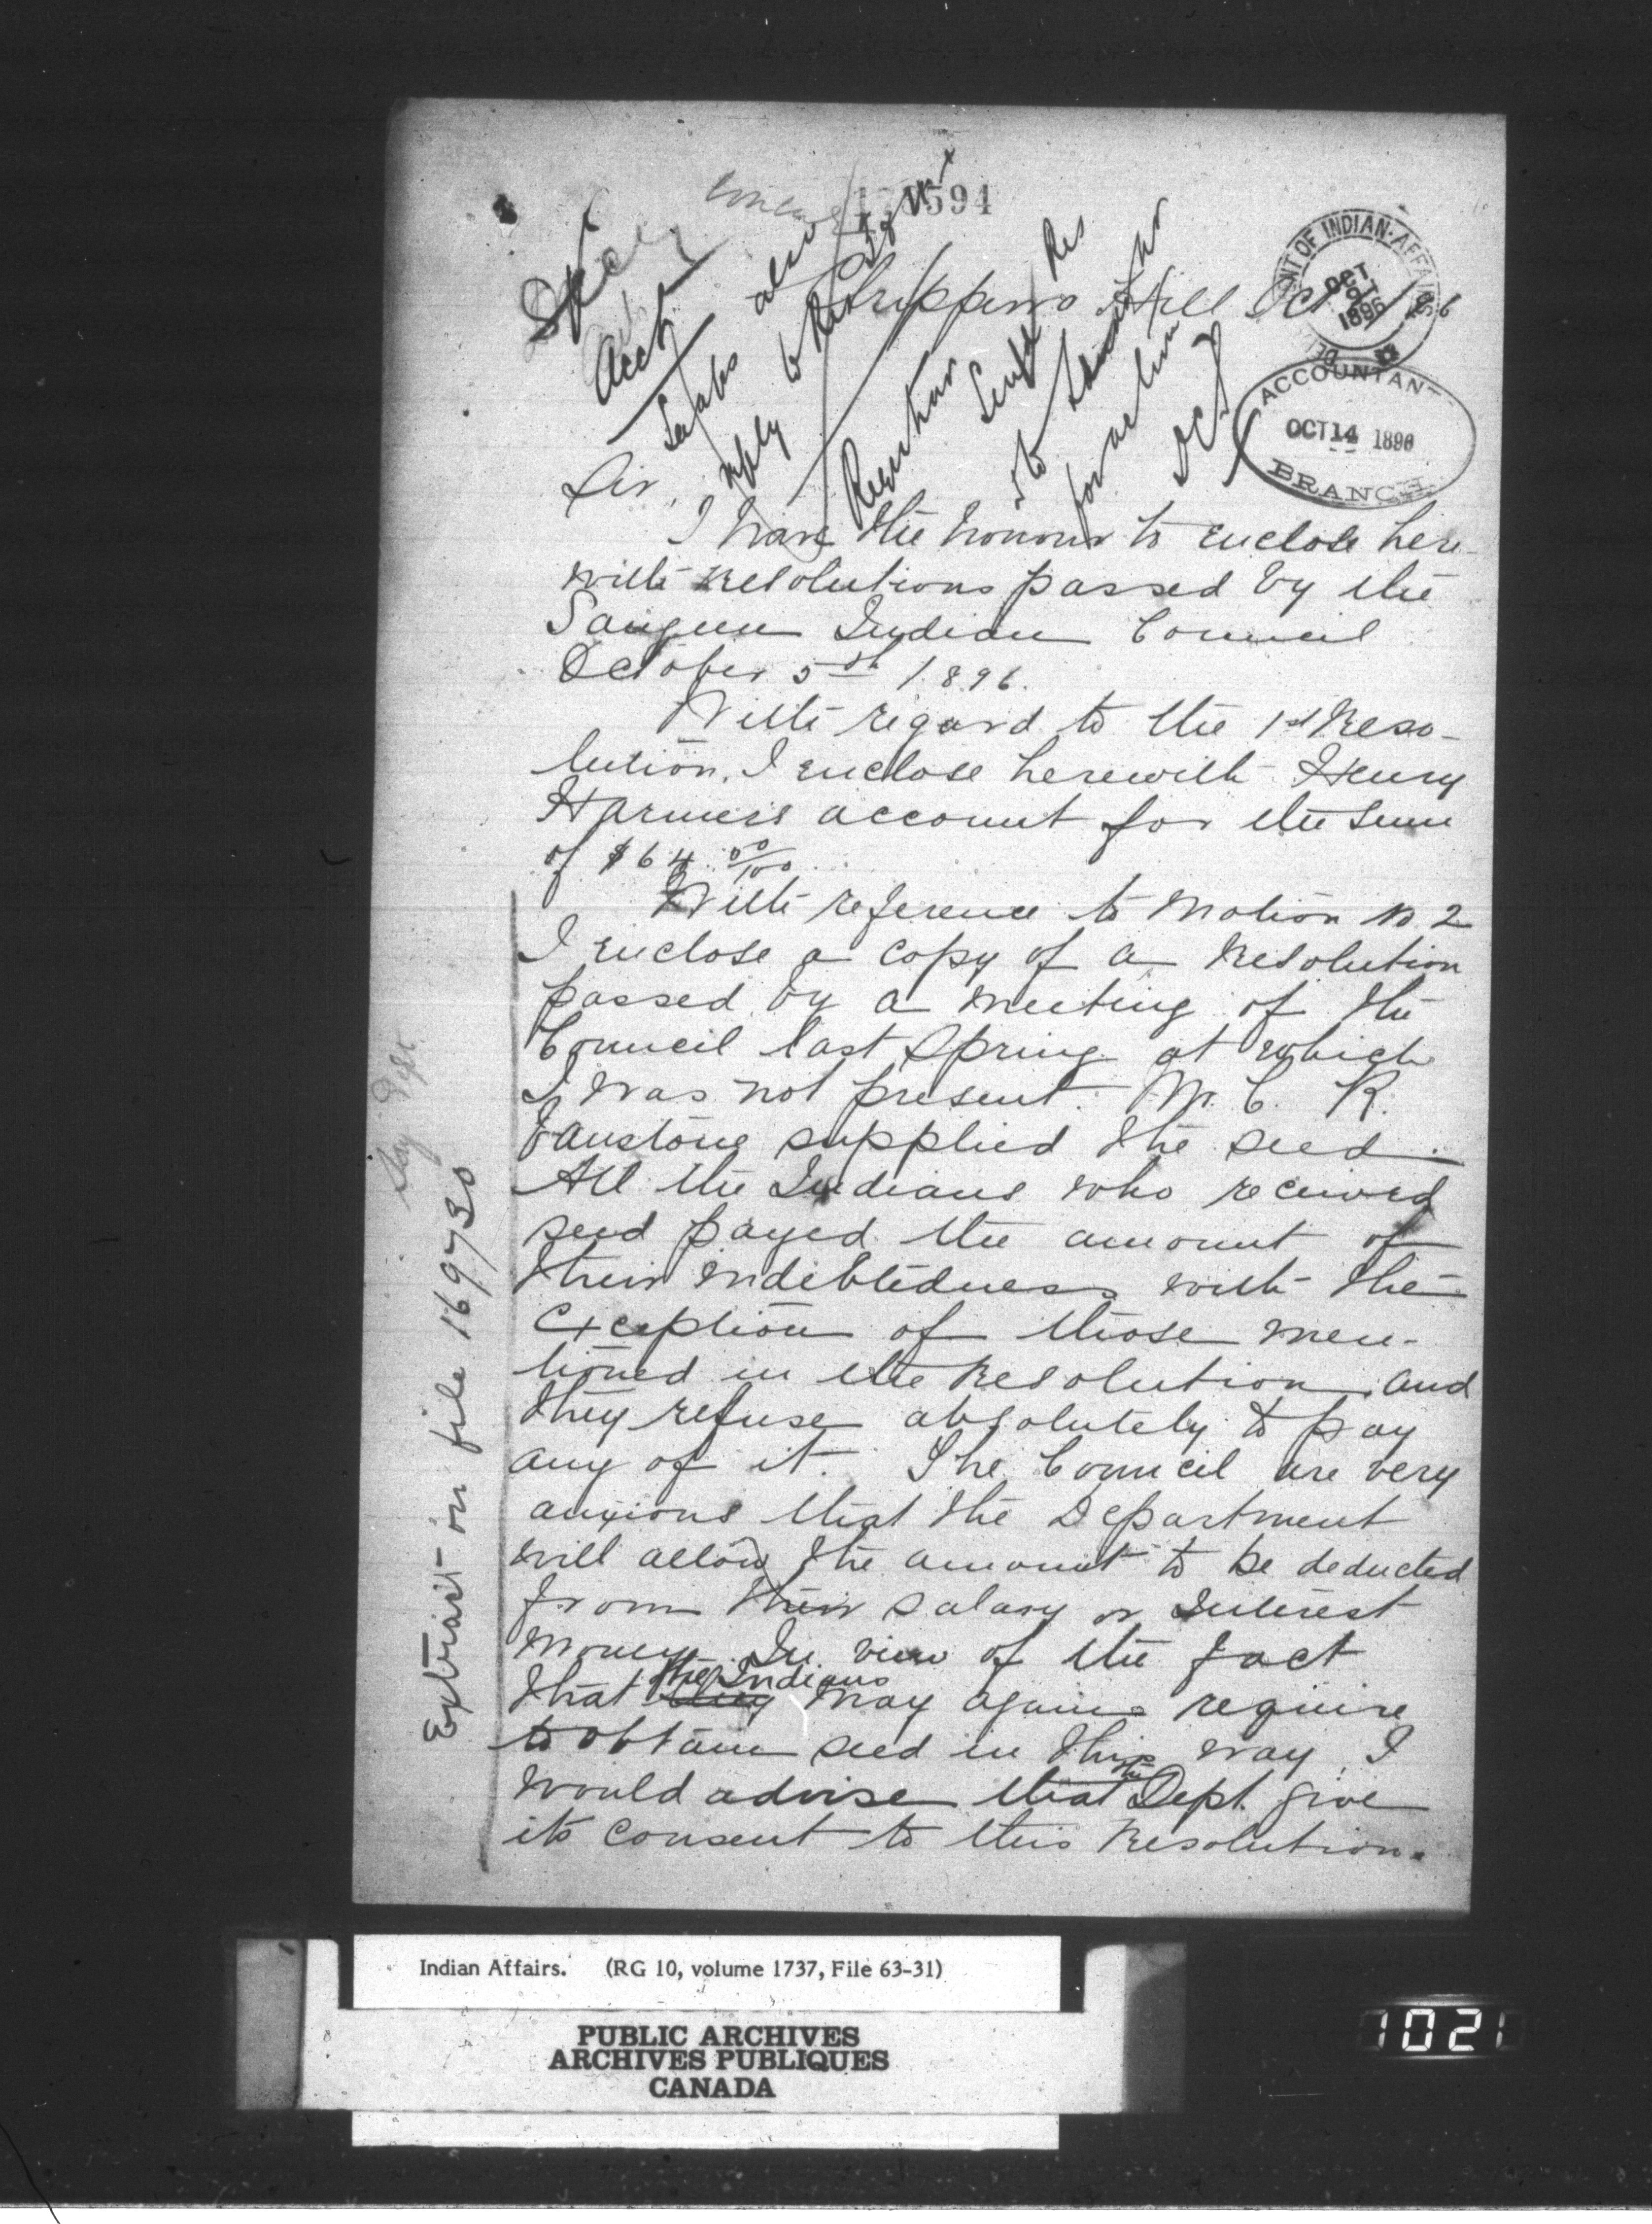 594
DEPARTMENT OF INDIAN AFFAIRS
OCT
1896
Acct
also
reply
Res
Chippawa Hill Oct
96
ACCOUNTANT
OCT 14 1896
BRANCH
Sir,
I have the honour to enclose here-
with resolutions passed by the
Saugeen Indian Council
October 5th 1896.
With regard to the 1st Reso-
lution, I enclose herewith Henry
Harmers account for the sum
of $64 00/100
With reference to Motion no 2
I enclose a copy of a Resolution
passed by a meeting of the
Council last Spring at which
I was not present. Mr. C. R.
Vanstone supplied the seed.
All the Indians who received
seed payed the amount of
their indebtedness with the
exception of those men-
tioned in the Resolution and
they refuse absolutely to pay
any of it. The Council are very
anxious that the Department
will allow the amount to be deducted
from their salary or Interest
money. In view of the fact
that the Indians may again require
to obtain seed in this way, I
would advise that the Dept. give
its consent to this Resolution.
Extract on file 169730
Indian Affairs. (RG 10, volume 1737, File 63-31)
PUBLIC ARCHIVES
ARCHIVES PUBLIQUES
CANADA
1021